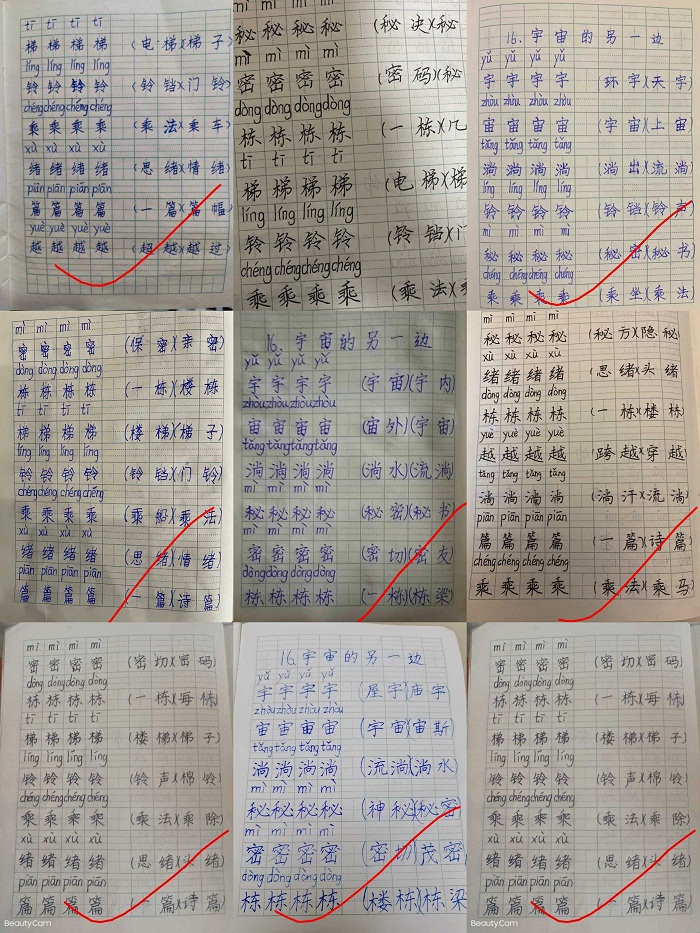 tī tī tī tī
梯 梯 梯 梯 (电 梯)(梯 子)
líng líng líng líng
铃 铃 铃 铃 (铃 铛)(门 铃)
chéng chéng chéng chéng
乘 乘 乘 乘 (乘 法)(乘 车)
xù xù xù xù
绪 绪 绪 绪 (思 绪)(情 绪)
piān piān piān piān
篇 篇 篇 篇 (一 篇)(篇 幅)
yuè yuè yuè yuè
越 越 越 越 (超 越)(越 过)
mì mì mì mì
秘 秘 秘 秘 (秘 决)(秘
mì mì mì mì
密 密 密 密 (密 码)(秘
dòng dòng dòng dòng
栋 栋 栋 栋 (一 栋)(几
tī tī tī tī
梯 梯 梯 梯 (电 梯)(梯
líng líng líng líng
铃 铃 铃 铃 (铃 铛)(门
chéng chéng chéng chéng
乘 乘 乘 乘 (乘 法)(乘
16. 宇 宙 的 另 一 边
yǔ yǔ yǔ yǔ
宇 宇 宇 宇 (环 宇)(天 宇)
zhòu zhòu zhòu zhòu
宙 宙 宙 宙 (宇 宙)(上 宙)
tǎng tǎng tǎng tǎng
淌 淌 淌 淌 (淌 出)(流 淌)
líng líng líng líng
铃 铃 铃 铃 (铃 铛)(铃 声)
mì mì mì mì
秘 秘 秘 秘 (秘 密)(秘 书)
chéng chéng chéng chéng
乘 乘 乘 乘 (乘 坐)(乘 法)
mì mì mì mì
密 密 密 密 (保 密)(亲 密)
dòng dòng dòng dòng
栋 栋 栋 栋 (一 栋)(楼 栋)
tī tī tī tī
梯 梯 梯 梯 (楼 梯)(梯 子)
líng líng líng líng
铃 铃 铃 铃 (铃 铛)(门 铃)
chéng chéng chéng chéng
乘 乘 乘 乘 (乘 船)(乘 法)
xù xù xù xù
绪 绪 绪 绪 (思 绪)(情 绪)
piān piān piān piān
篇 篇 篇 篇 (一 篇)(诗 篇)
16. 宇 宙 的 另 一 边
yǔ yǔ yǔ yǔ
宇 宇 宇 宇 (宇 宙)(宇 内)
zhòu zhòu zhòu zhòu
宙 宙 宙 宙 (宙 外)(宇 宙)
tǎng tǎng tǎng tǎng
淌 淌 淌 淌 (淌 水)(流 淌)
mì mì mì mì
秘 秘 秘 秘 (秘 密)(秘 书)
mì mì mì mì
密 密 密 密 (密 切)(密 友)
dòng dòng dòng dòng
栋 栋 栋 栋 (一 栋)(栋 梁)
mì mì mì mì
秘 秘 秘 秘 (秘 方)(隐 秘)
xù xù xù xù
绪 绪 绪 绪 (思 绪)(头 绪)
dòng dòng dòng dòng
栋 栋 栋 栋 (一 栋)(楼 栋)
yuè yuè yuè yuè
越 越 越 越 (跨 越)(穿 越)
tǎng tǎng tǎng tǎng
淌 淌 淌 淌 (淌 汗)(流 淌)
piān piān piān piān
篇 篇 篇 篇 (一 篇)(诗 篇)
chéng chéng chéng chéng
乘 乘 乘 乘 (乘 法)(乘 马)
mì mì mì mì
密 密 密 密 (密 切)(密 码)
dòng dòng dòng dòng
栋 栋 栋 栋 (一 栋)(每 栋)
tī tī tī tī
梯 梯 梯 梯 (楼 梯)(梯 子)
líng líng líng líng
铃 铃 铃 铃 (铃 声)(棉 铃)
chéng chéng chéng chéng
乘 乘 乘 乘 (乘 法)(乘 除)
xù xù xù xù
绪 绪 绪 绪 (思 绪)(头 绪)
piān piān piān piān
篇 篇 篇 篇 (一 篇)(诗 篇)
BeautyCam
16. 宇 宙 的 另 一 边
yǔ yǔ yǔ yǔ
宇 宇 宇 宇 (屋 宇)(庙 宇)
zhòu zhòu zhòu zhòu
宙 宙 宙 宙 (宇 宙)(宙 斯)
tǎng tǎng tǎng tǎng
淌 淌 淌 淌 (流 淌)(淌 水)
mì mì mì mì
秘 秘 秘 秘 (神 秘)(秘 密)
mì mì mì mì
密 密 密 密 (密 切)(茂 密)
dòng dòng dòng dòng
栋 栋 栋 栋 (楼 栋)(栋 梁)
mì mì mì mì
密 密 密 密 (密 切)(密 码)
dòng dòng dòng dòng
栋 栋 栋 栋 (一 栋)(每 栋)
tī tī tī tī
梯 梯 梯 梯 (楼 梯)(梯 子)
líng líng líng líng
铃 铃 铃 铃 (铃 声)(棉 铃)
chéng chéng chéng chéng
乘 乘 乘 乘 (乘 法)(乘 除)
xù xù xù xù
绪 绪 绪 绪 (思 绪)(头 绪)
piān piān piān piān
篇 篇 篇 篇 (一 篇)(诗 篇)
BeautyCam